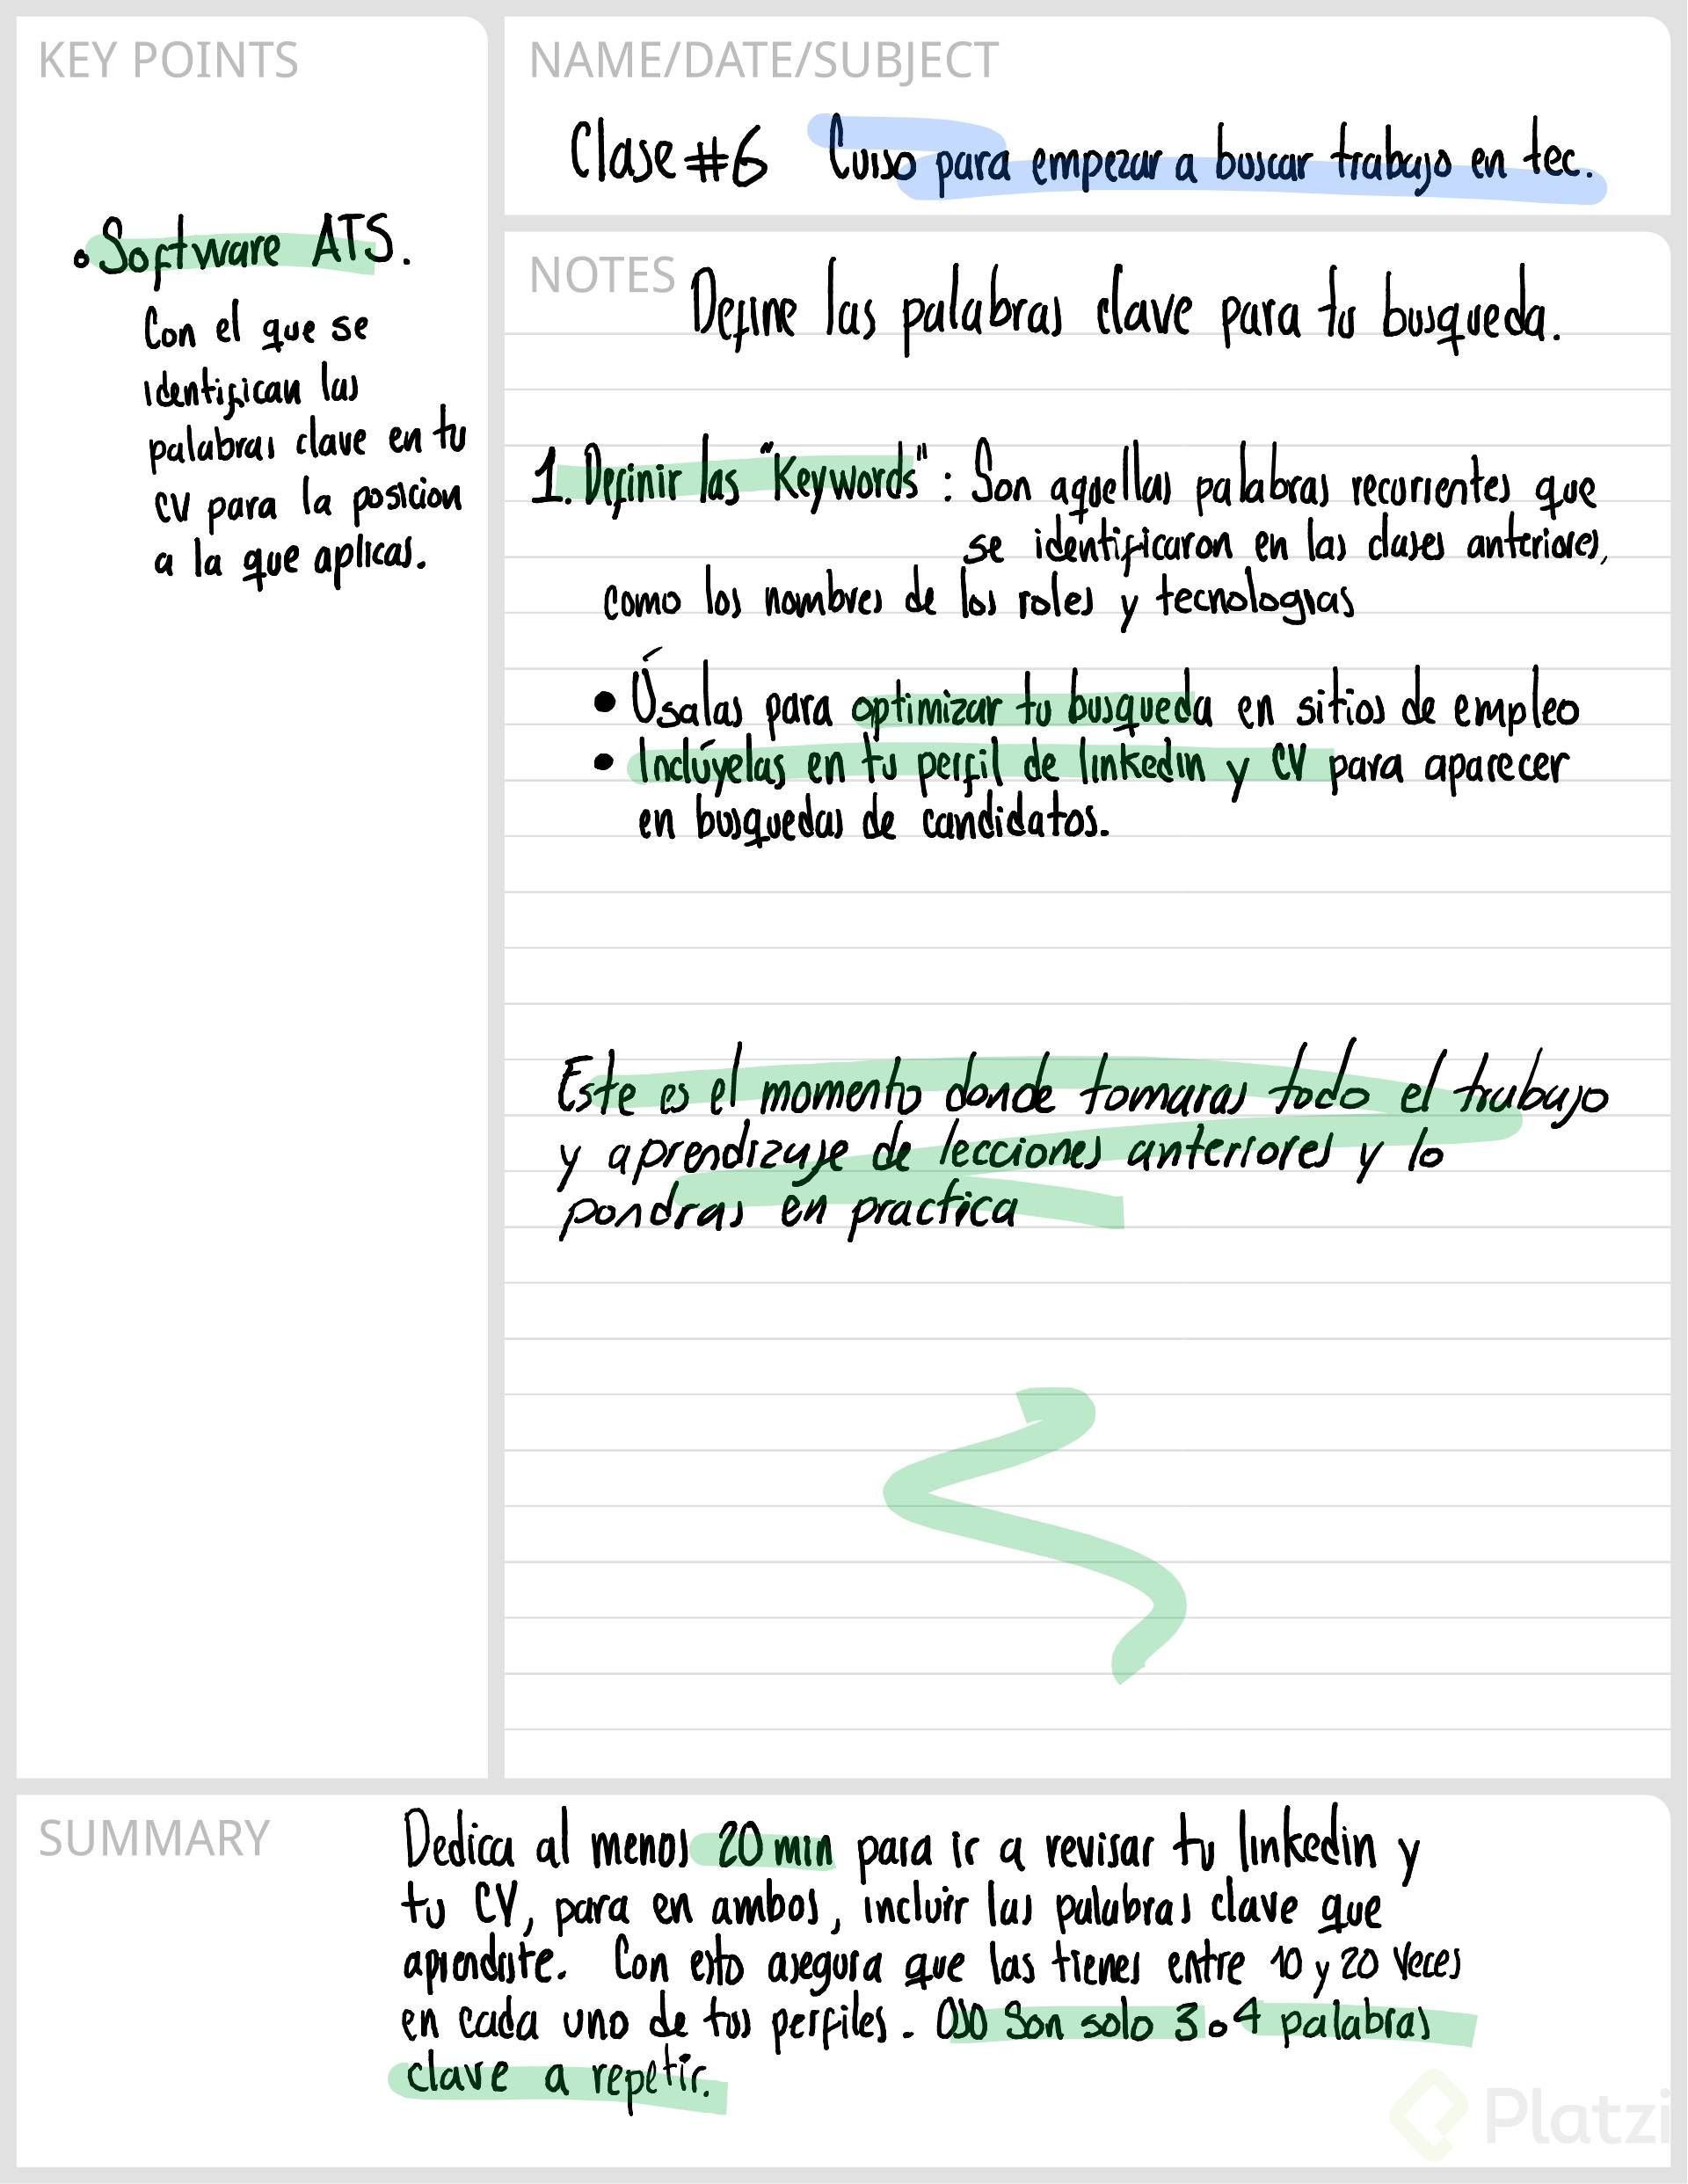 KEY POINTS
• Software ATS.
Con el que se
identifican las
palabras clave en tu
CV para la posicion
a la que aplicas.
NAME/DATE/SUBJECT
Clase #6 Curso para empezar a buscar trabajo en tec.
NOTES
Define las palabras clave para tu busqueda.
1. Definir las "Keywords": Son aquellas palabras recurrentes que
se identificaron en las clases anteriores,
como los nombres de los roles y tecnologias
• Úsalas para optimizar tu busqueda en sitios de empleo
• Inclúyelas en tu perfil de linkedin y CV para aparecer
en busquedas de candidatos.
Este es el momento donde tomaras todo el trabajo
y aprendizaje de lecciones anteriores y lo
pondras en practica
SUMMARY
Dedica al menos 20 min para ir a revisar tu linkedin y
tu CV, para en ambos, incluir las palabras clave que
aprendiste. Con esto asegura que las tienes entre 10 y 20 veces
en cada uno de tus perfiles. OJO Son solo 3 o 4 palabras
clave a repetir.
Platzi